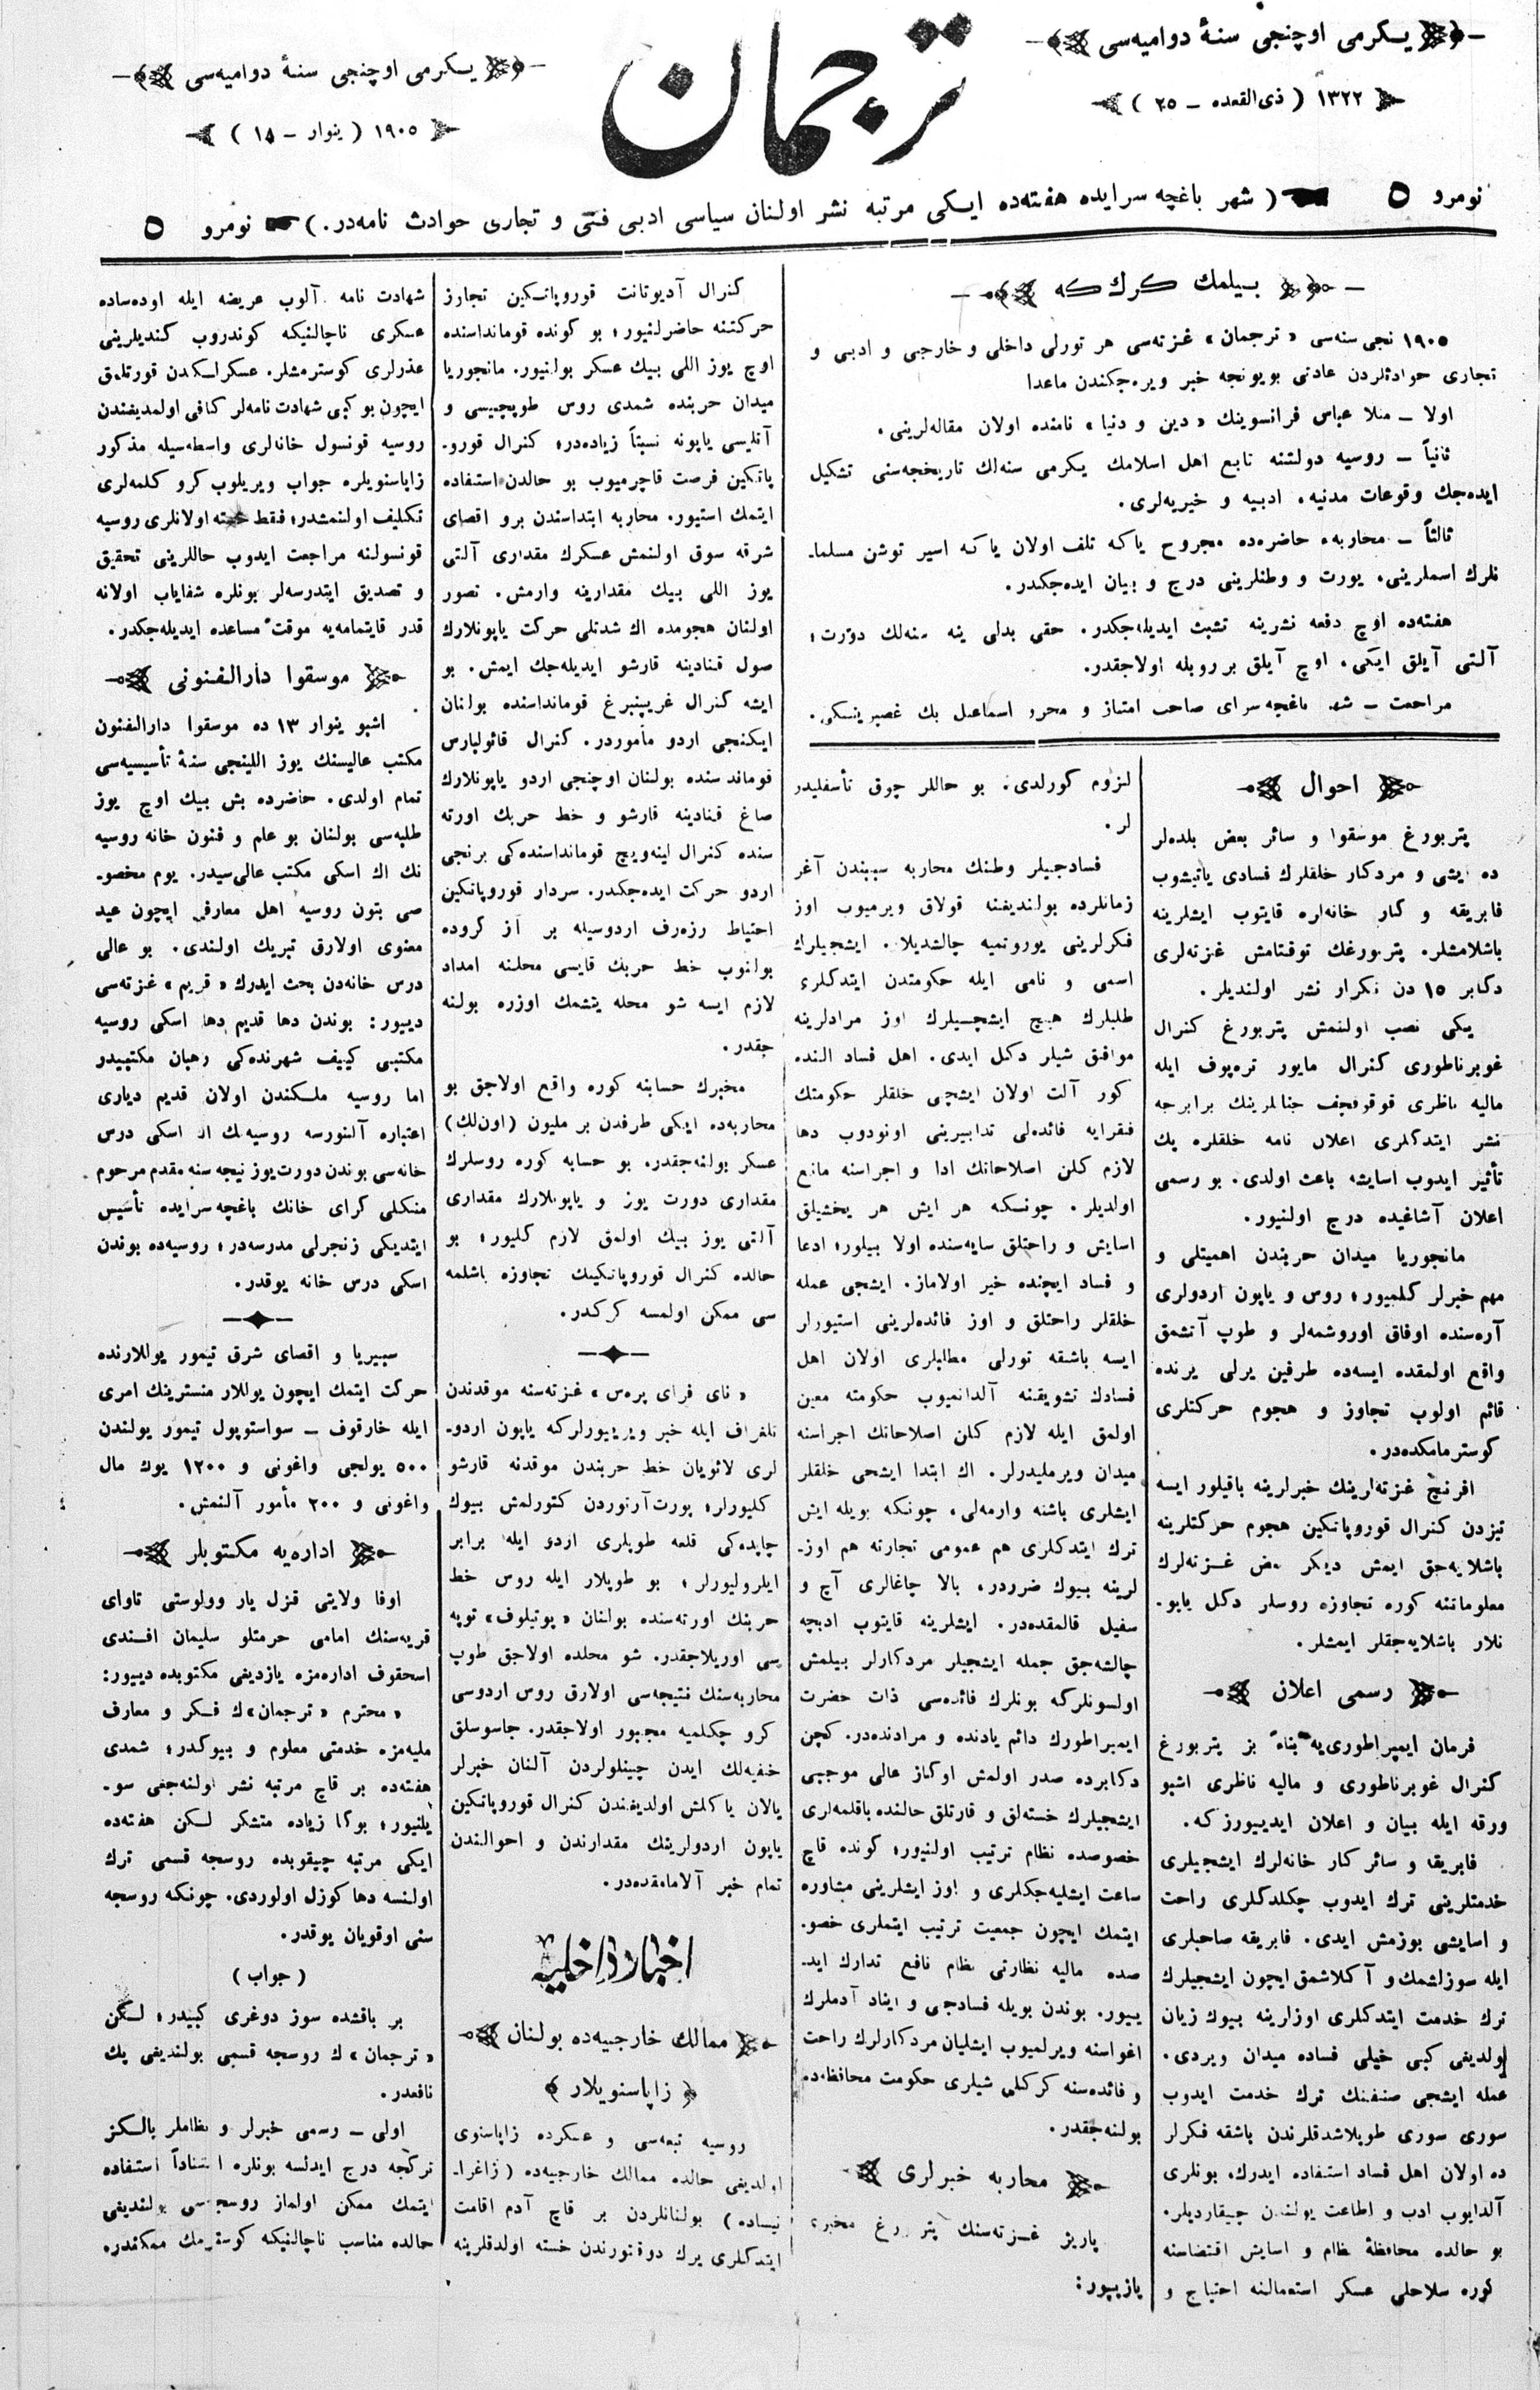 یكرمی اوچنجی سنهٔ دوامیه‌سی
١٣٢٢ ( ذی القعده ــ ٢٥ )
ترجمان
یكرمی اوچنجی سنهٔ دوامیه‌سی
١٩٠٥ ( ینوار ــ ١٨ )
نومرو ٥ ( شهر باغچه سرایده هفته‌ده ایكی مرتبه نشر اولنان سیاسی ادبی فنّی و تجاری حوادث نامه‌در. ) نومرو ٥
بیلمك كرك كه
١٩٠٥ نجی سنه‌سی « ترجمان » غزته‌سی هر تورلی داخلی و خارجی و ادبی و
تجاری حوادثلردن عادتی بویونجه خبر ویره‌جكندن ماعدا
اولا ــ ملا عباس فرانسوینك « دین و دنیا » نامنده اولان مقاله‌لرینی،
ثانیاً ــ روسیه دولتنه تابع اهل اسلامك یكرمی سنه‌لك تاریخجه‌سنی تشكیل
ایده‌جك وقوعات مدنیه، ادبیه و خیریه‌لری.
ثالثاً ــ محاربهٔ حاضره‌ده مجروح یا كه تلف اولان یا كه اسیر توشن مسلما-
نلرك اسملرینی، یورت و وطنلرینی درج و بیان ایده‌جكدر.
هفته‌ده اوچ دفعه نشرینه تشبث ایدیله‌جكدر. حقی بدلی ینه سنه‌لك دورت؛
آلتی آیلق ایكی، اوچ آیلق بر روبله اولاجقدر.
مراجعت ــ شهر باغچه‌سرای صاحب امتیاز و محرر اسماعیل بك غصپرینسكی.
احوال
پتربورغ موسقوا و سائر بعض بلده‌لر
ده ایشی و مردكار خلقلرك فسادی یاتیشوب
فابریقه و كار خانه‌لره قایتوب ایشلرینه
باشلامشلر. پتربورغك توقتامش غزته‌لری
دكابر ١٥ دن تكرار نشر اولندیلر.
یكی نصب اولنمش پتربورغ كنرال
غوبرناطوری كنرال مایور تره‌پوف ایله
مالیه ناظری قوقوفچف جنابلرینك برابرجه
نشر ایتدكلری اعلان نامه خلقلره پك
تأثیر ایدوب اسایشه باعث اولدی. بو رسمی
اعلان آشاغیده درج اولنیور.
مانجوریا میدان حربندن اهمیتلی و
مهم خبرلر كلمیور؛ روس و یاپون اردولری
آره‌سنده اوفاق اوروشمه‌لر و طوپ آتشمق
واقع اولمقده ایسه‌ده طرفین یرلی یرنده
قائم اولوب تجاوز و هجوم حركتلری
كوسترمامكده‌در.
افرنج غزته‌لرینك خبرلرینه باقیلور ایسه
تیزدن كنرال قوروپاتكین هجوم حركتلرینه
باشلایه‌جق ایمش دیكر بعض غزته‌لرك
معلوماتنه كوره تجاوزه روسلر دكل یاپو-
نلار باشلایه‌جقلر ایمشلر.
رسمی اعلان
فرمان ایمپراطوری‌یه بناءً بز پتربورغ
كنرال غوبرناطوری و مالیه ناظری اشبو
ورقه ایله بیان و اعلان ایدییورز كه.
فابریقا و سائر كار خانه‌لرك ایشجیلری
خدمتلرینی ترك ایدوب چكلدكلری راحت
و اسایشی بوزمش ایدی. فابریقه صاحبلری
ایله سوزلشمك و آكلاشمق ایچون ایشجیلرك
ترك خدمت ایتدكلری اوزلرینه بیوك زیان
اولدیغی كبی خیلی فساده میدان ویردی.
عمله ایشجی صنفنك ترك خدمت ایدوب
سوری سوری طوپلاشدقلرندن باشقه فكرلر
ده اولان اهل فساد استفاده ایدرك، بونلری
آلدایوب ادب و اطاعت یولندن چیقاردیلر.
بو حالده محافظهٔ نظام و اسایش اقتضاسنه
كوره سلاحلی عسكر استعمالنه احتیاج و
لزوم كورلدی. بو حاللر چوق تأسفلیدر
لر.
فسادجیلر وطنك محاربه سببندن آغر
زمانلرده بولندیغنه قولاق ویرمیوب اوز
فكرلرینی یوروتمیه چالشدیلا. ایشجیلرك
اسمی و نامی ایله حكومتدن ایتدكلری
طلبلرك هیچ ایشجیلرك اوز مرادلرینه
موافق شیلر دكل ایدی. اهل فساد النده
كور آلت اولان ایشچی خلقلر حكومتك
فقرایه فائده‌لی تدابیرینی اونودوب دها
لازم كلن اصلاحاتك ادا و اجراسنه مانع
اولدیلر. چونسكه هر ایش هر یخشیلق
اسایش و راحتلق سایه‌سنده اولا بیلور؛ ادعا
و فساد ایچنده خیر اولاماز. ایشجی عمله
خلقلر راحتلق و اوز فائده‌لرینی استیورلر
ایسه باشقه تورلی مطالبلری اولان اهل
فسادك تشویقنه آلدانمیوب حكومته معین
اولمق ایله لازم كلن اصلاحاتك اجراسنه
میدان ویرملیدرلر. اك ابتدا ایشجی خلقلر
ایشلری باشنه وارمه‌لی، چونكه بویله ایش
ترك ایتدكلری هم عمومی تجارته هم اوز-
لرینه بیوك ضرردر، بالا چاغالری آچ و
سفیل قالمقده‌در. ایشلرینه قایتوب ادبچه
چالشه‌جق جمله ایشجیلر مردكارلر بیلمش
اولسونلركه بونلرك فائده‌سی ذات حضرت
ایمبراطورك دائم یادنده و مرادنده‌در. كچن
دكابرده صدر اولمش اوكاز عالی موجبی
ایشجیلرك خسته‌لق و قارتلق حالنده باقلمه‌لری
خصوصده نظام ترتیب اولنیور؛ كونده قاچ
ساعت ایشلیه‌جكلری و اوز ایشلرینی مشاوره
ایتمك ایچون جمعیت ترتیب ایتملری خصو-
صده مالیه نظارتی نظام نافع تدارك اید-
ییور. بوندن بویله فسادجی و ایناد آدملرك
اغواسنه ویرلمیوب ایشلیان مردكارلرك راحت
و فائده‌سنه كركلی شیلری حكومت محافظه‌ده
بولنه‌جقدر.
محاربه خبرلری
پاریژ غزته‌سنك پتربورغ مخبری
یازییور:
كنرال آدیوتانت قوروپاتكین تجاوز
حركتنه حاضرلنیور؛ بو كونده قومانداسنده
اوچ یوز اللی بیك عسكر بولنیور. مانجوریا
میدان حربنده شمدی روس طوپچیسی و
آتلیسی یاپونه نسبتاً زیاده‌در؛ كنرال قورو-
پاتكین فرصت قاچرمیوب بو حالدن استفاده
ایتمك استیور. محاربه ابتداسندن برو اقصای
شرقه سوق اولنمش عسكرك مقداری آلتی
یوز اللی بیك مقدارینه وارمش. تصور
اولنان هجومده اك شدتلی حركت یاپونلارك
صول قنادینه قارشو ایدیله‌جك ایمش. بو
ایشه كنرال غریپنبرغ قومانداسنده بولنان
ایكنجی اردو مأموردر. كنرال قائولبارس
قومانداسنده بولنان اوچنجی اردو یاپونلارك
صاغ قنادینه قارشو و خط حربك اورته
سنده كنرال لینه‌ویچ قومانداسنده‌كی برنجی
اردو حركت ایده‌جكدر. سردار قوروپاتكین
احتیاط رزه‌رف اردوسیله بر آز كروده
بولنوب خط حربك قایسی محلنه امداد
لازم ایسه شو محله یتشمك اوزره بولنه
جقدر.
مخبرك حسابنه كوره واقع اولاجق بو
محاربه‌ده ایكی طرفدن بر ملیون (اون‌لك)
عسكر بولنه‌جقدر. بو حسابه كوره روسلرك
مقداری دورت یوز و یاپونلارك مقداری
آلتی یوز بیك اولمق لازم كلیور؛ بو
حالده كنرال قوروپاتكینك تجاوزه باشلمه
سی ممكن اولمسه كركدر.
« نای فرای پره‌س » غزته‌سنه موقدندن
تلغراف ایله خبر ویرییورلركه یاپون اردو-
لری لائویان خط حربندن موقدنه قارشو
كلیورلر؛ پورت آرتوردن كتورلمش بیوك
چاپده‌كی قلعه طوپلری اردو ایله برابر
ایلرولیورلر؛ بو طوپلار ایله روس خط
حربنك اورته‌سنده بولنان «پوتیلوف» توپه
سی اوریلاجقدر. شو محلده اولاجق طوپ
محاربه‌سنك نتیجه‌سی اولارق روس اردوسی
كرو چكلمیه مجبور اولاجقدر. جاسوسلق
خفیه‌لك ایدن چینلولردن آلنان خبرلر
یالان یاكلمش اولدیغندن كنرال قوروپاتكین
یاپون اردولرینك مقدارندن و احوالندن
تمام خبر آلامامقده‌در.
اخبار داخلیه
ممالك خارجیه‌ده بولنان
زاپاسنویلار
روسیه تبعه‌سی و عسكرده زاپاسنوی
اولدیغی حالده ممالك خارجیه‌ده (زاغرا-
نیساده) بولنانلردن بر قاچ آدم اقامت
ایتدكلری یرك دوقتورندن خسته اولدقلرینه
شهادت نامه آلوب عریضه ایله اوده‌ساده
عسكری ناچالنیكه كوندروب كندیلرینی
عذرلری كوسترمشلر. عسكرلكدن قورتلمق
ایچون بو كبی شهادت نامه‌لر كافی اولمدیغندن
روسیه قونسول خانه‌لری واسطه‌سیله مذكور
زاپاسنویلره جواب ویریلوب كرو كلمه‌لری
تكلیف اولنمشدر؛ فقط خسته اولانلری روسیه
قونسولنه مراجعت ایدوب حاللرینی تحقیق
و تصدیق ایتدرسه‌لر بونلره شفایاب اولانه
قدر قایتمامه‌یه موقت مساعده ایدیله‌جكدر.
موسقوا دارالفنونی
اشبو ینوار ١٣ ده موسقوا دارالفنون
مكتب عالیسنك یوز اللینجی سنهٔ تأسیسیه‌سی
تمام اولدی. حاضرده بش بیك اوچ یوز
طلبه‌سی بولنان بو علم و فنون خانه روسیه
نك اك اسكی مكتب عالی‌سیدر. یوم مخصو-
صی بتون روسیه اهل معارفی ایچون عید
معنوی اولارق تبریك اولندی. بو عالی
درس خانه‌دن بحث ایدرك « قریم » غزته‌سی
دییور: بوندن دها قدیم دها اسكی روسیه
مكتبی كییف شهرنده‌كی رهبان مكتبیدر
اما روسیه ملكندن اولان قدیم دیاری
اعتباره آلنورسه روسیه‌نك اك اسكی درس
خانه‌سی بوندن دورت یوز نیجه سنه مقدم مرحوم
منكلی كرای خانك باغچه سرایده تأسیس
ایتدیكی زنجرلی مدرسه‌در؛ روسیه‌ده بوندن
اسكی درس خانه یوقدر.
سیبریا و اقصای شرق تیمور یوللارنده
حركت ایتمك ایچون یوللار منسترینك امری
ایله خارقوف ــ سواستوپول تیمور یولندن
٥٠٠ یولجی واغونی و ١٢٠٠ یوك مال
واغونی و ٢٠٠ مأمور آلنمش.
اداره‌یه مكتوبلر
اوفا ولایتی قزل یار وولوستی تاوای
قریه‌سنك امامی حرمتلو سلیمان افندی
اسحقوف اداره‌مزه یازدیغی مكتوبده دییور:
« محترم « ترجمان »ك فكر و معارف
ملیه‌مزه خدمتی معلوم و بیوكدر؛ شمدی
هفته‌ده بر قاچ مرتبه نشر اولنه‌جغی سو-
یلنیور؛ بوكا زیاده متشكر لكن هفته‌ده
ایكی مرتبه چیقوبده روسجه قسمی ترك
اولنسه دها كوزل اولوردی. چونكه روسجه
سنی اوقویان یوقدر.
( جواب )
بر باقشده سوز دوغری كبیدر؛ لكن
« ترجمان »ك روسجه قسمی بولندیغی پك
نافعدر.
اولی ــ رسمی خبرلر و نظاملر یالكز
تركجه درج ایدلسه بونلره استناداً استفاده
ایتمك ممكن اولماز روسجه‌سی بولندیغی
حالده مناسب ناچالنیكه كوسترمك ممكندر.